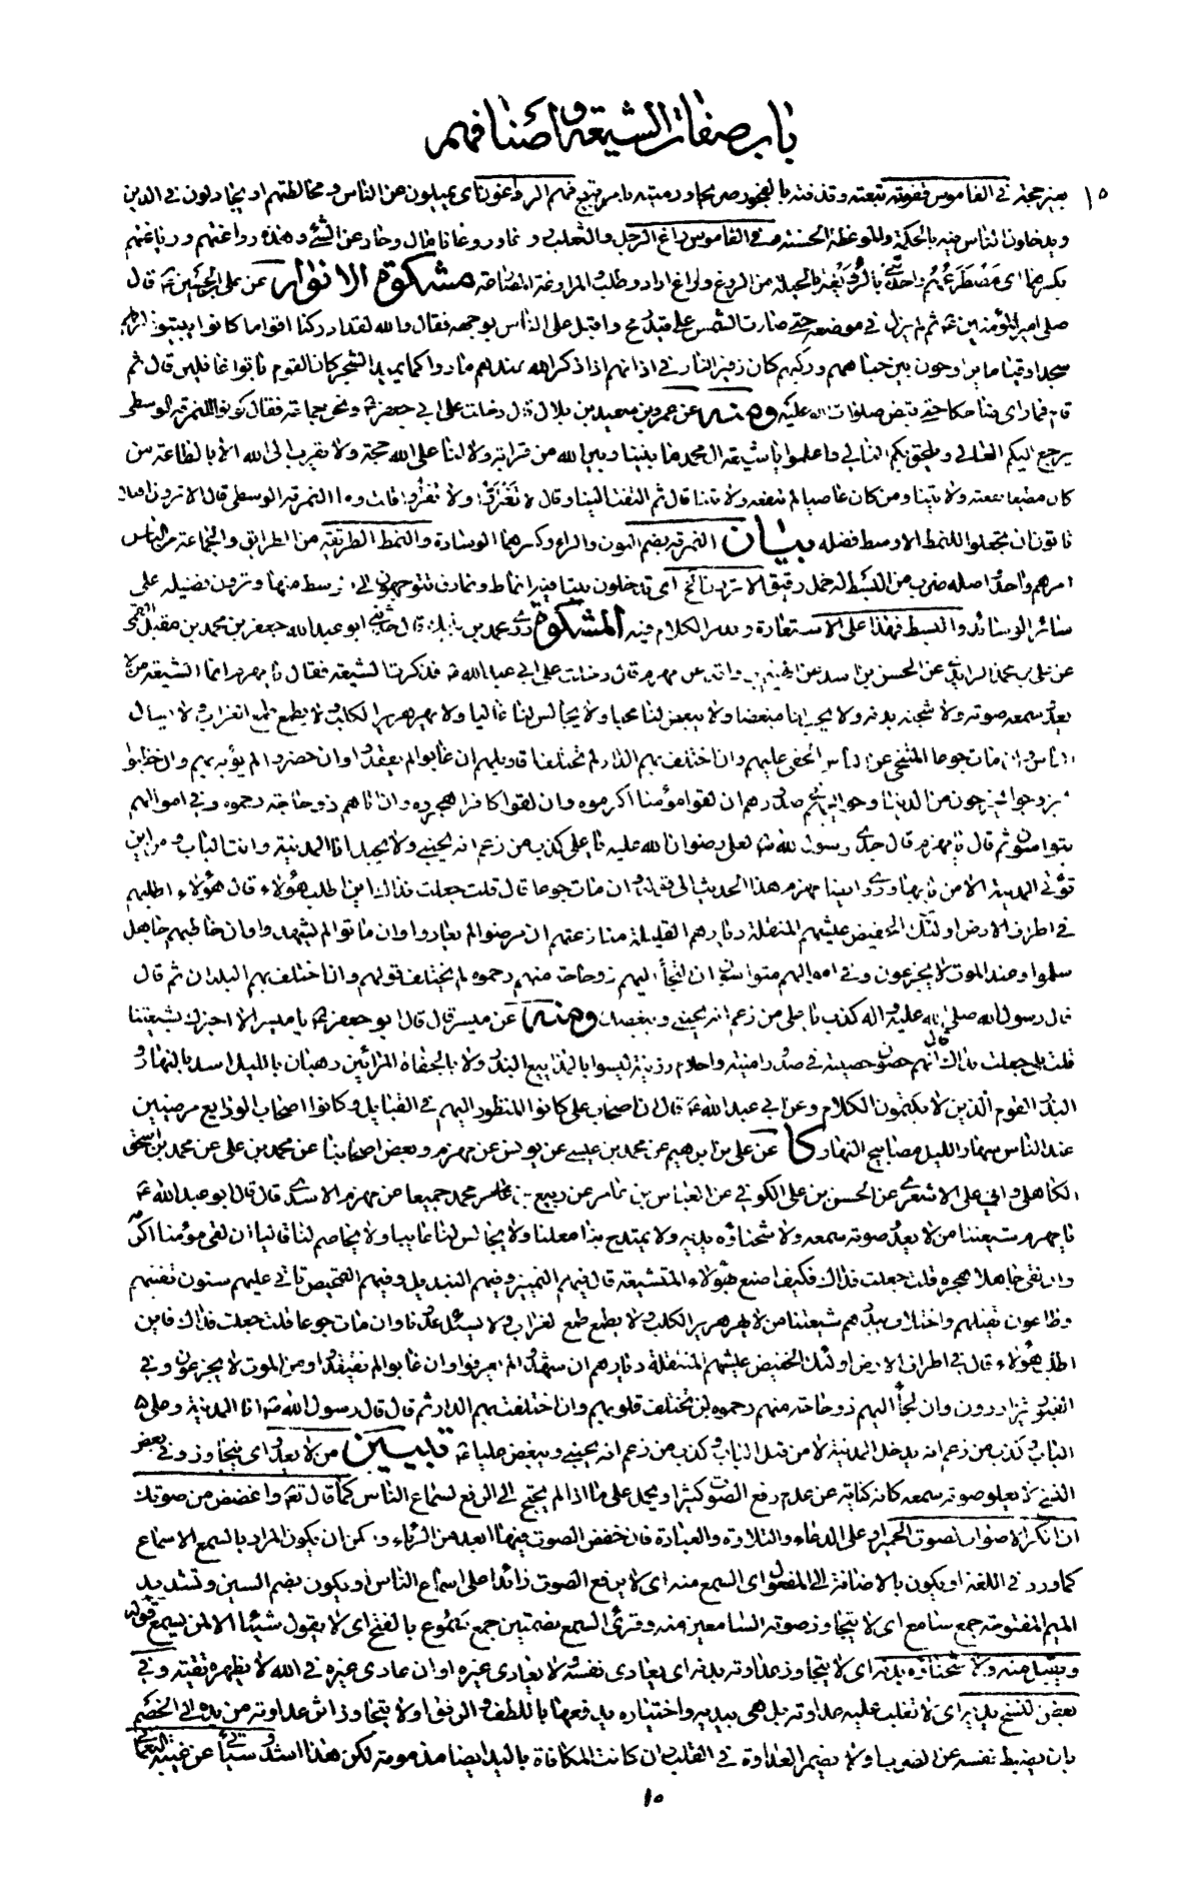 باب صفات الشيعة و أصنافهم
١٥
بغير حجة في القاموس قفوته تبعته وقذفته بالفجور صريحا ورميته بامر قبيح فهم الرواغون اى يميلون عن الناس ومخالطتهم او يجادلون في الدين
ويدخلون الناس فيه بالحكمة والموعظة الحسنة في القاموس راغ الرجل والثعلب روغا وروغانا مال وحاد عن الشئ وهذه رواغتهم ورياغتهم
بكسرهما اى مصطرعهم واخذتني بالرويغة بالحيلة من الروغ واراغ اراد وطلب والمراوغة المصارعة مشكوة الانوار عن على بن الحسين قال
صلى امير المؤمنين ثم لم يزل في موضعه حتى صارت الشمس على قيد رمح واقبل على الناس بوجهه فقال والله لقد ادركنا اقواما كانوا يبيتون لربهم
سجدا وقياما يراوحون بين جباههم وركبهم كان زفير النار في اذانهم اذا ذكر الله عندهم مادوا كما يميد الشجر كان القوم باتوا غافلين قال ثم
قام فما راى ضاحكا حتى قبض صلوات الله عليه ومنه عن عمرو بن سعيد بن بلال قال دخلت على ابي جعفر ونحن جماعة فقال كونوا النمرقة الوسطى
يرجع اليكم الغالي ويلحق بكم التالي واعلموا يا شيعة ال محمد ما بيننا وبين الله من قرابة ولا لنا على الله حجة ولا يقرب الى الله الا بالطاعة من
كان مطيعا نفعته ولايتنا ومن كان عاصيا لم تنفعه ولايتنا قال ثم التفت الينا وقال لا تغتروا ولا تفتروا قلت وما النمرقة الوسطى قال الا ترون اهلا
تاتون ان تجعلوا للنمط الاوسط فضله بيان النمرقة بضم النون والراء وكسرهما الوسادة والنمط الطريقة من الطرايق والجماعة من الناس
امرهم واحد واصله ضرب من البسط له خمل رقيق
سائر الوسائد والبسط فهذا على الاستعارة المشكوة عن محمد بن قال حدثني ابو عبد الله جعفر بن محمد بن مقبل القمي
عن على بن محمد عن الحسن بن اسد عن عن مهزم قال دخلت على ابي عبد الله فذكرت الشيعة فقال يا مهزم انما الشيعة من لا
يعدو سمعه صوته ولا شجنه بدنه ولا يحب لنا مبغضا ولا يبغض لنا محبا ولا يجالس لنا غاليا ولا يهر هرير الكلب ولا يطمع طمع الغراب ولا يسال
الناس وان مات جوعا المتنحي عن الناس الخفي عليهم وان اختلفت بهم الدار لم تختلف اقاويلهم ان غابوا لم يفقدوا وان حضروا لم يؤبه بهم وان خطبوا
لم يزوجوا يخرجون من الدنيا وحوائجهم في صدورهم ان لقوا مؤمنا اكرموه وان لقوا كافرا هجروه وان اتاهم ذو حاجة رحموه وفي اموالهم
يتواسون ثم قال يا مهزم قال جدي رسول الله لعلي رضوان الله عليه يا على كذب من زعم انه يحبني ولا يحبك انا المدينة وانت الباب ومن اين
تؤتى المدينة الا من بابها وروى ايضا مهزم هذا الحديث الى قوله وان مات جوعا قال قلت جعلت فداك اين اطلب هؤلاء قال هؤلاء اطلبهم
في اطراف الارض اولئك الخفيض عيشهم المنتقلة ديارهم القليلة منازعتهم ان مرضوا لم يعادوا وان ماتوا لم يشهدوا وان خاطبهم جاهل
سلموا وعند الموت لا يجزعون وفي اموالهم متواسون ان لجأ اليهم ذو حاجة منهم رحموه لم يختلف قولهم وان اختلف بهم البلدان ثم قال
قال رسول الله صلى الله عليه واله كذب يا على من زعم انه يحبني ويبغضك ومنه عن ميسر قال قال ابو جعفر يا ميسر الا اخبرك بشيعتنا
قلت بلى جعلت فداك قال انهم حصون حصينة في صدور امينة واحلام رزينة ليسوا بالمذاييع البذر ولا بالجفاة المرائين رهبان بالليل اسد بالنهار
البذر القوم الذين لا يكتمون الكلام وعن ابي عبد الله قال ان اصحاب على كانوا المنظور اليهم في القبايل وكانوا اصحاب الودايع مرضيين
عند الناس سهار الليل مصابيح النهار كا عن على بن ابرهيم عن محمد بن عيسى عن يونس عن مهزم وبعض اصحابنا عن محمد بن على عن محمد بن اسحق
الكاهلي وابي على الاشعري عن الحسن بن على الكوفي عن العباس بن عامر عن ربيع بن محمد جميعا عن مهزم الاسدي قال قال ابو عبد الله
يا مهزم شيعتنا من لا يعدو صوته سمعه ولا شحناؤه بدنه ولا يمتدح بنا معلنا ولا يجالس لنا عايبا ولا يخاصم لنا قاليا ان لقى مؤمنا اكرمه
وان لقى جاهلا هجره قلت جعلت فداك فكيف اصنع بهؤلاء المتشيعة قال فيهم التمييز وفيهم التبديل وفيهم التمحيص تاتي عليهم سنون تفنيهم
وطاعون يقتلهم واختلاف يبددهم شيعتنا من لا يهر هرير الكلب ولا يطمع طمع الغراب ولا يسئل عدونا وان مات جوعا قلت جعلت فداك فاين
اطلب هؤلاء قال في اطراف الارض اولئك الخفيض عيشهم المنتقلة ديارهم ان شهدوا لم يعرفوا وان غابوا لم يفتقدوا ومن الموت لا يجزعون وفي
القبور يتزاورون وان لجأ اليهم ذو حاجة منهم رحموه لن تختلف قلوبهم وان اختلفت بهم الدار ثم قال قال رسول الله انا المدينة وعلى
الباب وكذب من زعم انه يدخل المدينة لا من قبل الباب وكذب من زعم انه يحبني ويبغض عليا تبيين من لا يعدو اى يتجاوز وفي بعض
النسخ لا يعلو صوته سمعه كانه كناية عن عدم رفع الصوت كثيرا ويحمل على ما اذا لم يحتج الى الرفع لسماع الناس كما قال تعالى واغضض من صوتك
ان انكر الاصوات لصوت الحمير او على الدعاء والتلاوة والعبادة فان خفض الصوت فيها ابعد من الرياء و يمكن ان يكون المراد بالسمع الاسماع
كما ورد في اللغة او يكون بالاضافة الى المفعول اى السمع منه اى لا يرفع الصوت زائدا على اسماع الناس او يكون بضم السين وتشديد
الميم المفتوحة جمع سامع اى لا يتجاوز صوته السامعين منه وقرئ السمع بضمتين جمع سموع بالفتح اى لا يقول شيئا الا لمن يسمع قوله
ويقبل منه ولا شحناؤه بدنه اى لا يتجاوز عداوته بدنه اى يعادي نفسه ولا يعادي غيره او ان عادى غيره في الله لا يظهره تقية وفي
بعض النسخ يديه اى لا تغلب عليه عداوته بل هي بيديه واختياره يدفعها باللطف والرفق او لا يتجاوز اثر عداوته من يده الى الخصم
بان يضبط نفسه عن الضرب او لا يضمر العداوة في القلب وان كانت المكافاة باليد ايضا مذمومة لكن هذا اشد و سيأتي عن غيبة النعماني
١٥